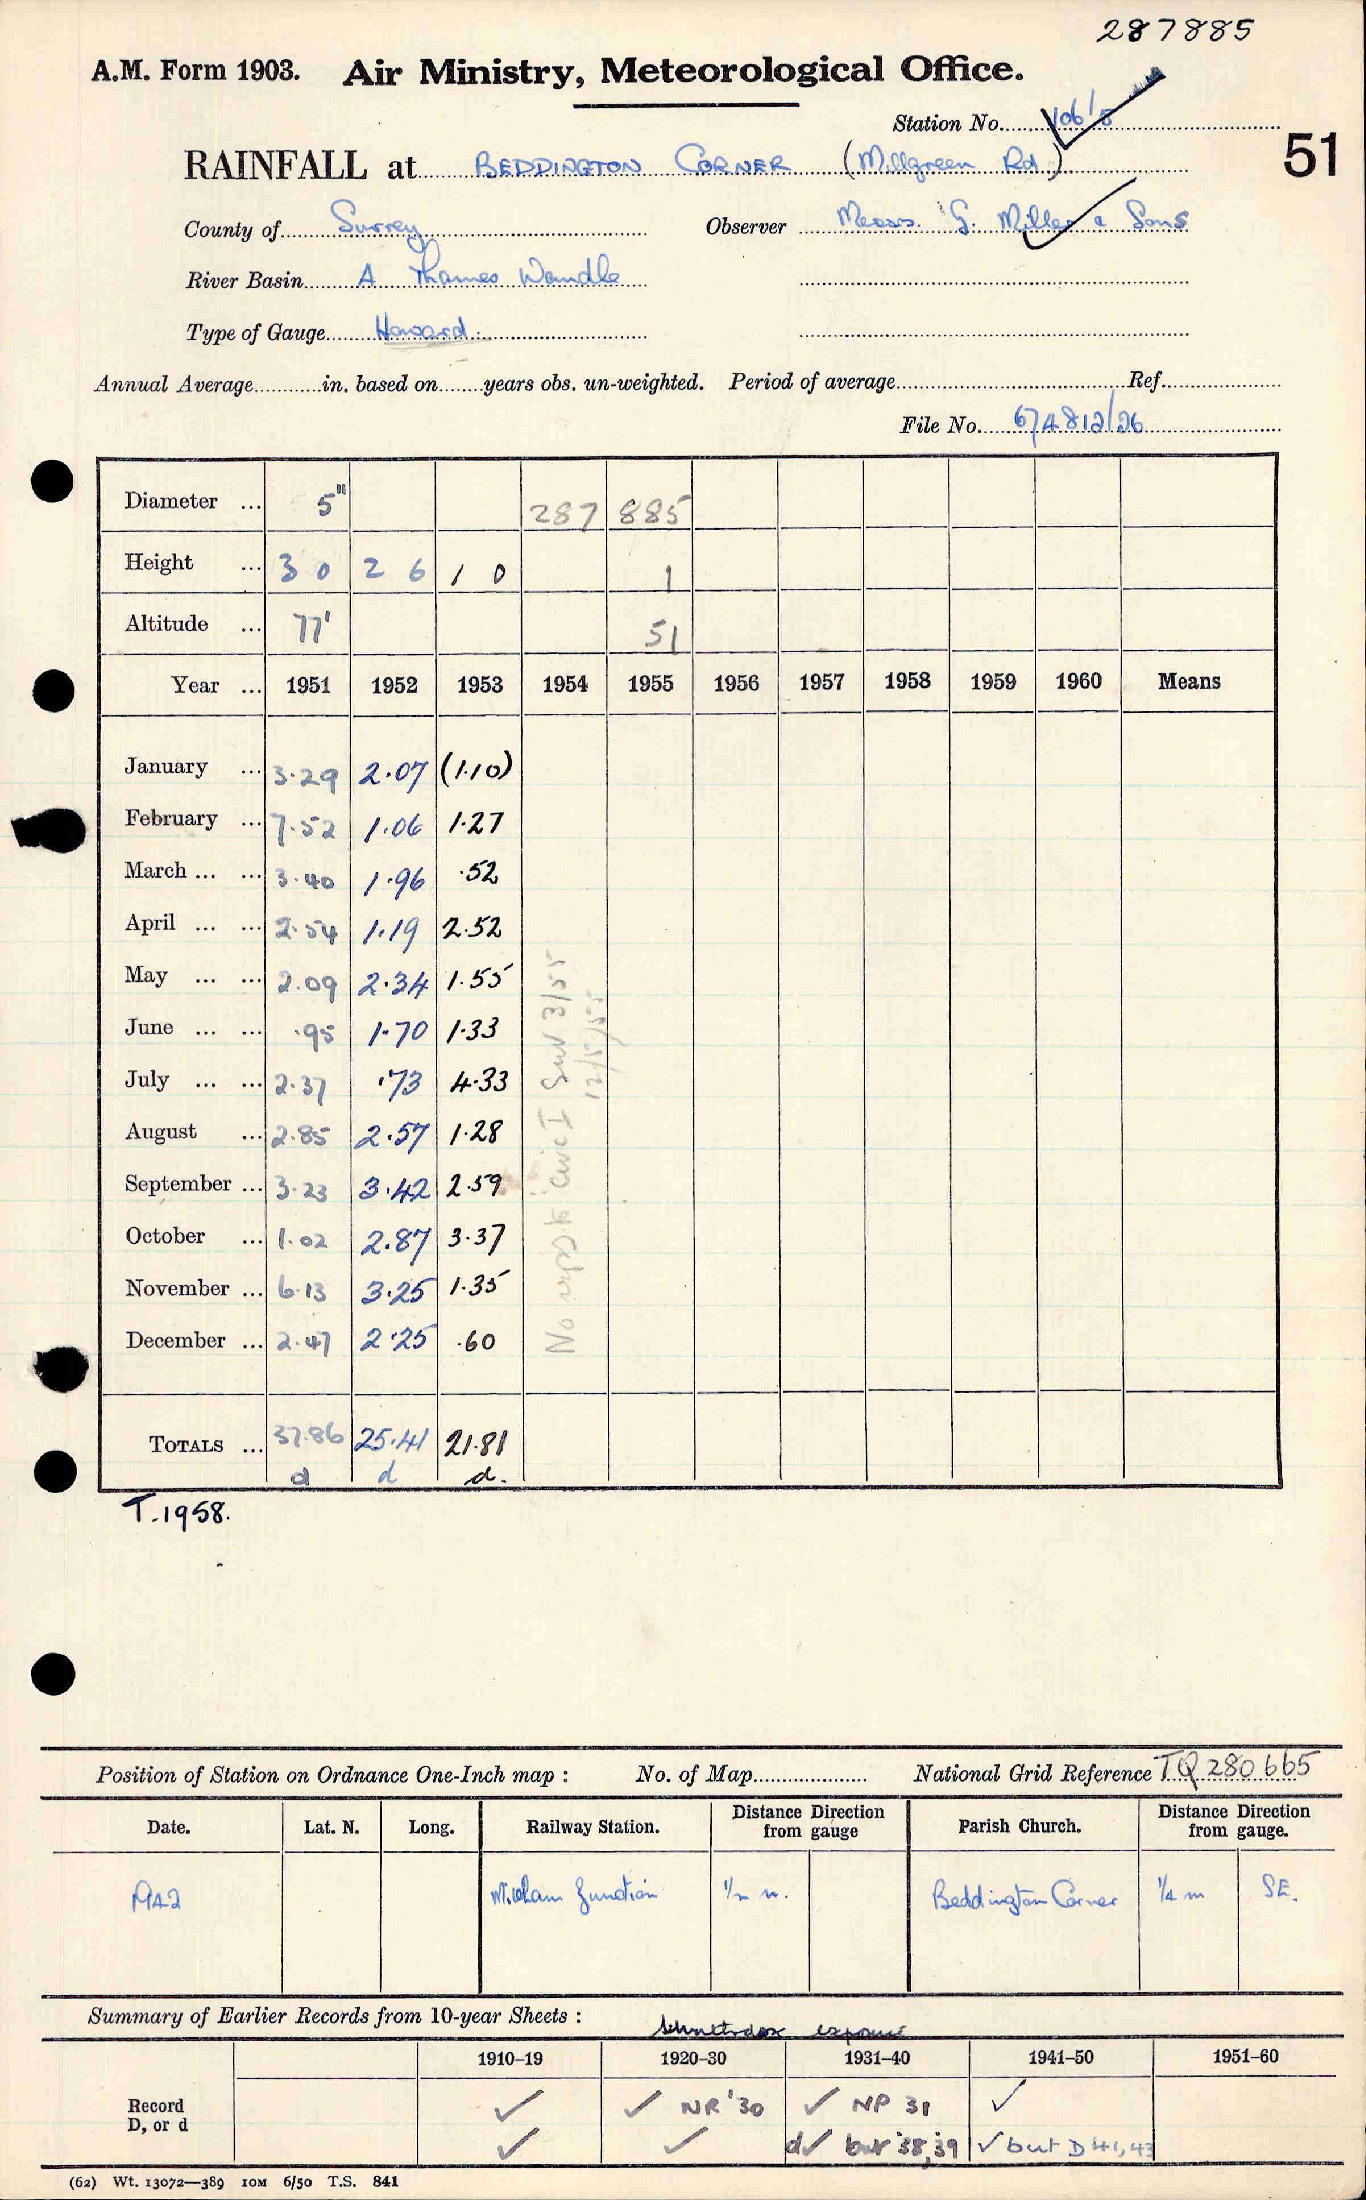 287885
A.M. Form 1903. Air Ministry, Meteorological Office.
Station No. 106/5
51
RAINFALL at BEDDINGTON CORNER (Millgreen Rd.)
County of Surrey Observer Messrs. G. Miller & Sons
River Basin A Thames Wandle
Type of Gauge Howard
Annual Average in. based on years obs. un-weighted. Period of average Ref.
File No. 674812/26
Diameter ... 5" 287 885
Height ... 3 0 2 6 1 0 1
Altitude ... 77' 51
Year ... 1951 1952 1953 1954 1955 1956 1957 1958 1959 1960 Means
January ... 3.29 2.07 (1.10)
February ... 7.52 1.06 1.27
March ... ... 3.40 1.96 .52
April ... ... 2.54 1.19 2.52
May ... ... 2.09 2.34 1.55
June ... ... .95 1.70 1.33
July ... ... 2.37 .73 4.33
August ... 2.85 2.57 1.28
September ... 3.23 3.42 2.59
October ... 1.02 2.87 3.37
November ... 6.13 3.25 1.35
December ... 2.47 2.25 .60
TOTALS ... 37.86 25.41 21.81
d d d.
No 3/55
T.1958.
Position of Station on Ordnance One-Inch map : No. of Map National Grid Reference TQ 280665
Date. Lat. N. Long. Railway Station. Distance Direction from gauge Parish Church. Distance Direction from gauge.
1942 Mitcham Junction 1/2 m. Beddington Corner 1/4 m SE.
Summary of Earlier Records from 10-year Sheets :
1910–19 1920–30 1931–40 1941–50 1951–60
Record ✓ ✓ NR '30 ✓ NP 31 ✓
D, or d ✓ ✓ d✓ but '38,39 ✓ but D 41,43
(62) Wt. 13072—389 10M 6/50 T.S. 841